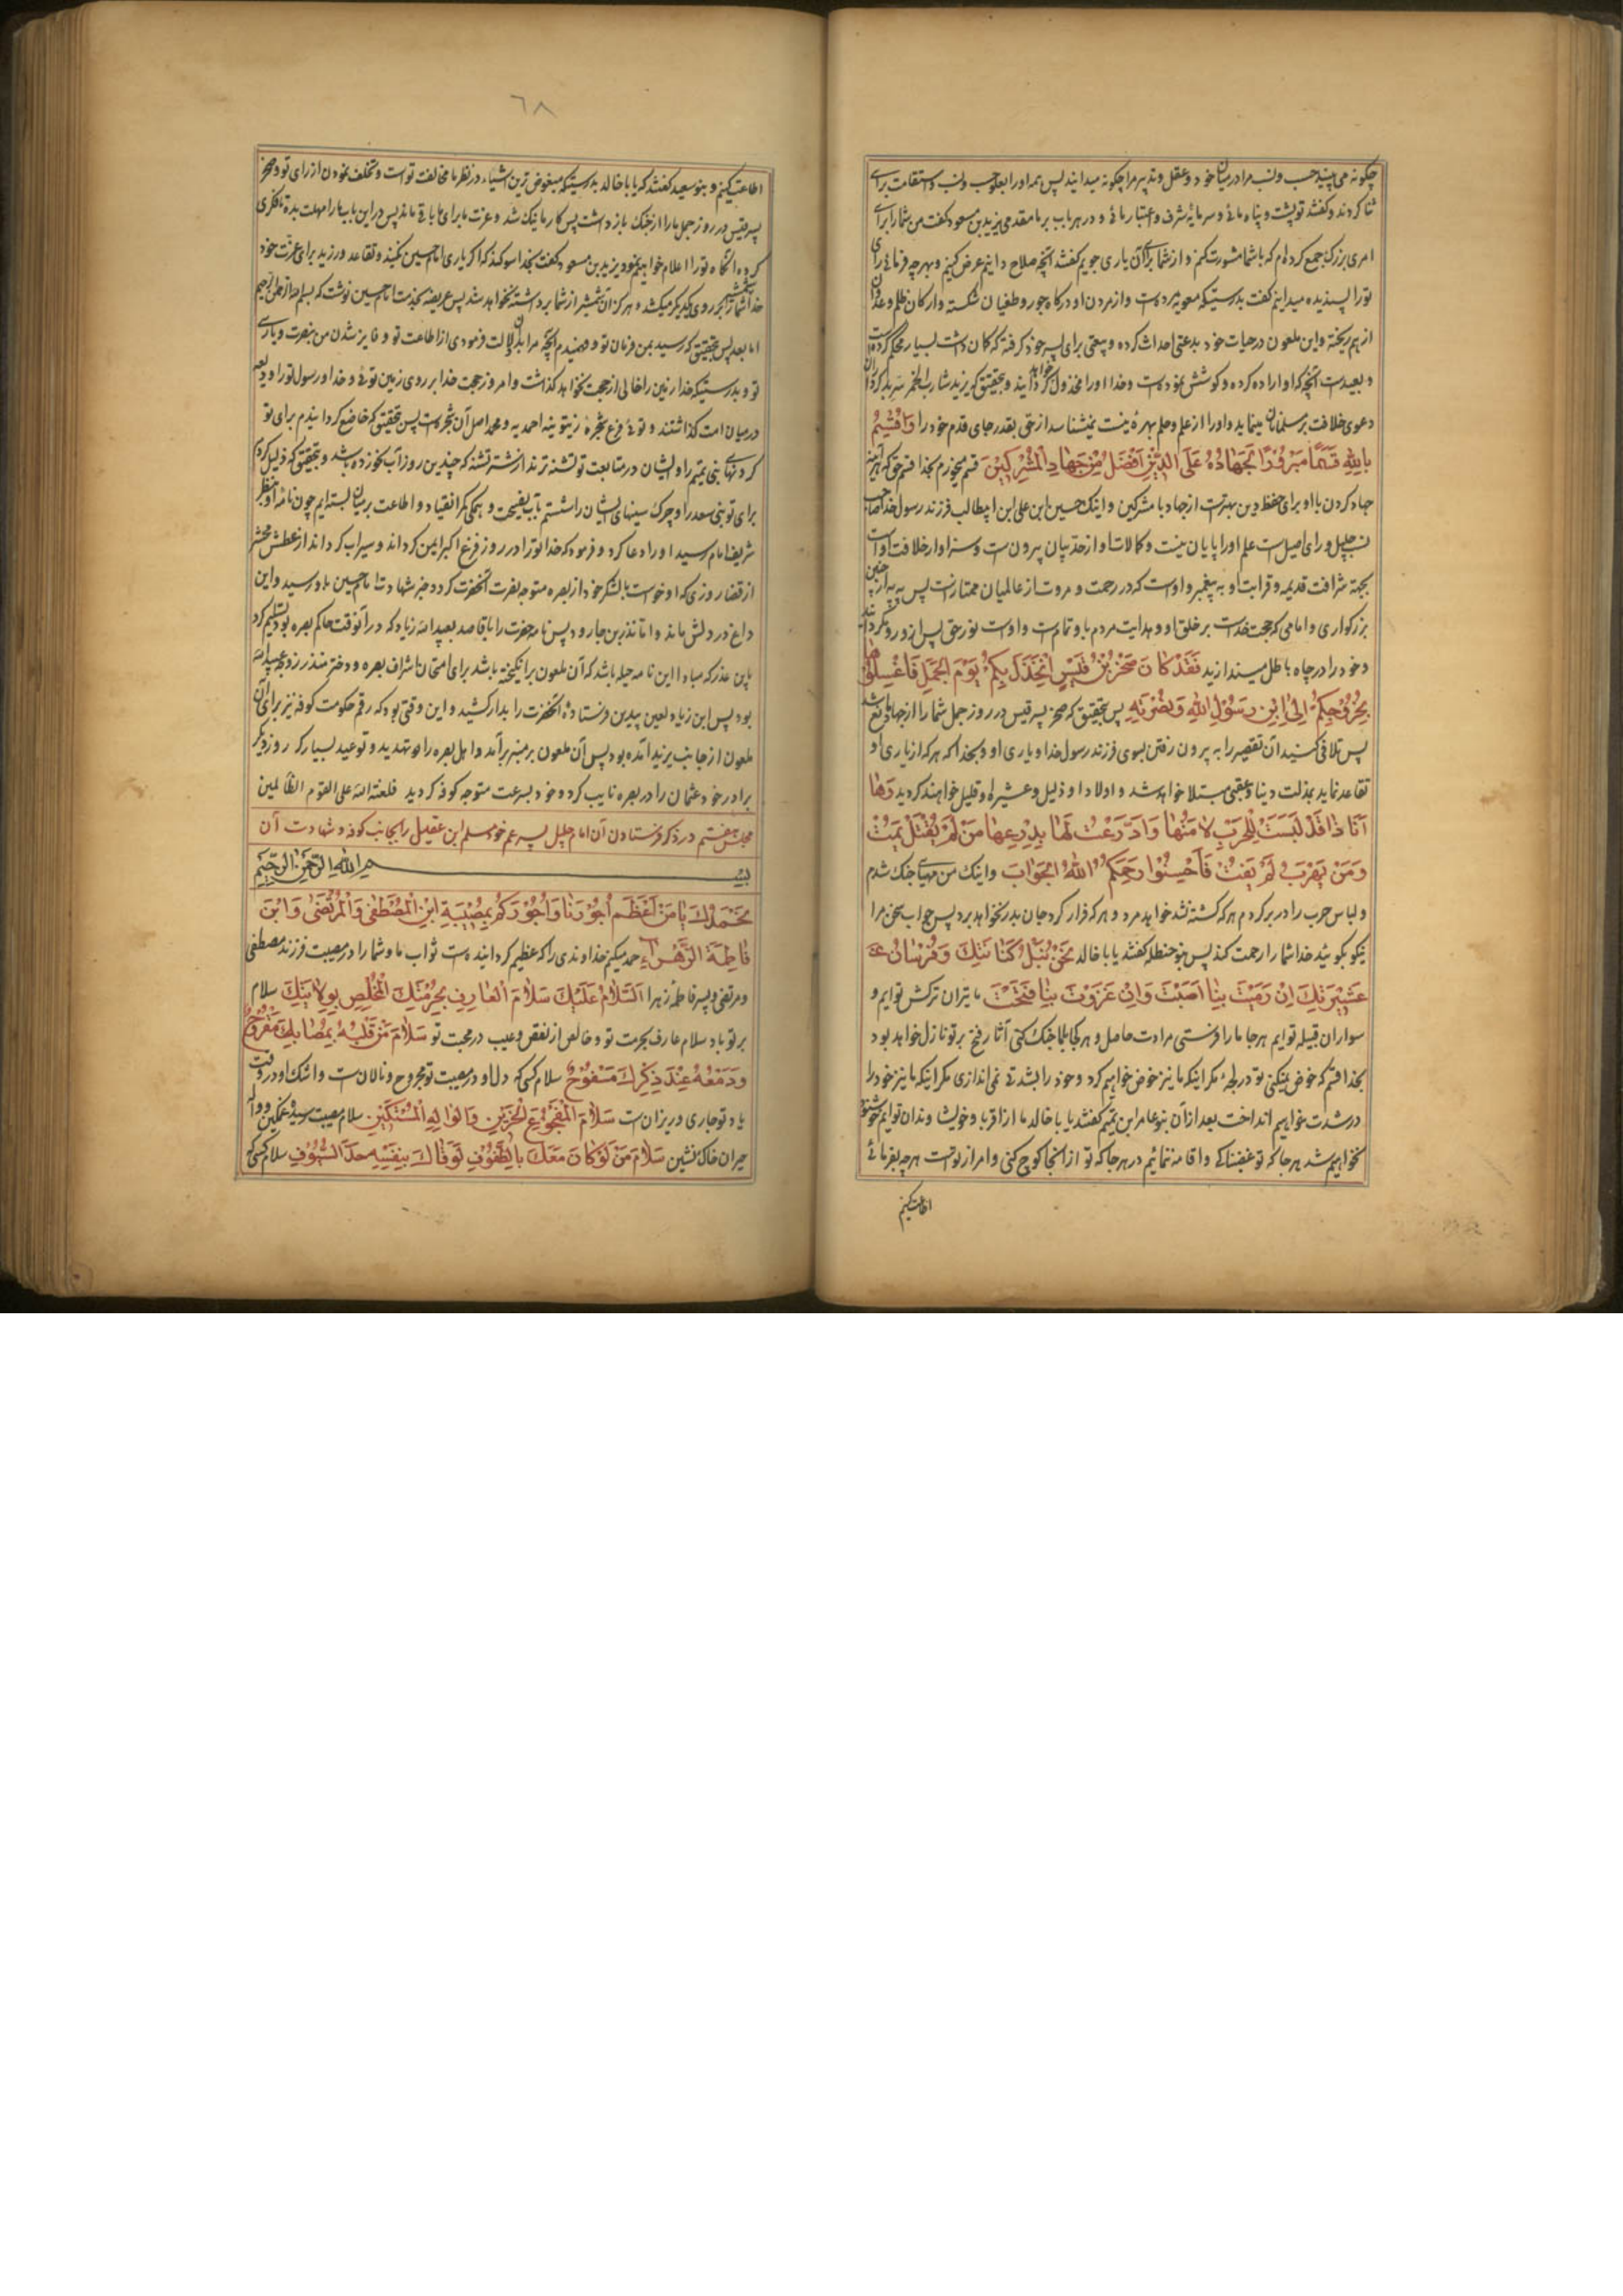 چکونه می بینید حسب ونسب مرا در میان خود و عقل وتدبیر مرا چکونه میدانید پس همه اورا بعلو حسب ونسب و استقامت برای
ثنا کردند و کفتند تو پشت و پناه مائی و سرمایه شرف و اعتبار مائی و در هر باب بر ما مقدمی یزید بن مسعود کفت من شمارا برای
امری بزرک جمع کرده ام که با شما مشورت کنم و از شما برای آن یاری جویم کفتند آنچه صلاح دانیم عرض کنیم و بهر چه فرمائی رای
تورا پسندیده میدانیم کفت بدرستیکه معویه مرده است و از مردن او درکاه جور و طغیان شکسته و ارکان ظلم و عدوان
از هم ریخته و این ملعون در حیات خود بدعتی احداث کرده و بیعتی برای پسر خود کرفته که کمان داشت بسیار محکم کرده است
و بعید است آنچه که او اراده کرده و کوشش نموده است و خدا اورا مخذول خواهد کردانید و بتحقیق که یزید شارب الخمر
دعوی خلافت بر مسلمانان مینماید و اورا از علم و حلم بهرهٔ نیست نمیشناسد از حق بقدر جای قدم خود را وَاُقْسِمُ
بِاللّٰهِ قَسَمًا مَبْرُورًا لَجِهَادُهُ عَلَی الدّینِ اَفْضَلُ مِنْ جِهَادِ الْمُشْرِکینَ قسم میخورم بخدا قسم حق که هر آینه
جهاد کردن با او برای حفظ دین بهتر است از جهاد با مشرکین و اینک حسین ابن علی ابن ابیطالب فرزند رسول خدا صاحب
نسب جلیل و رای اصیل است علم اورا پایان نیست و کمالات او از حد بیان بیرون است و سزاوار خلافت اوست
بجهة شرافت قدیمه و قرابت او به پیغمبر و اوست که در رحمت و مروت از عالمیان ممتاز است پس
بزرکواری و امامی که حجت خداست بر خلق او و هدایت مردم باو تمام است و اوست نور حق پس از او رو مکردانید
و خود را در چاه باطل میندازید فَقَدْ کَانَ صَخْرُ بْنُ قَیْسٍ اِنْخَذَلَ بِکُمْ یَوْمَ الْجَمَلِ فَاغْسِلُوهَا
بِخُرُوجِکُمْ اِلَی ابْنِ رَسُولِ اللّٰهِ وَنُصْرَتِهِ پس بتحقیق که صخر پسر قیس در روز جمل شما را از جهاد مانع شد
پس تلافی کنید آن تقصیر را به بیرون رفتن بسوی فرزند رسول خدا و یاری او و بخدا که هر که از یاری او
تقاعد نماید بمذلت دنیا و عقبی مبتلا خواهد شد و اولاد او ذلیل و عشیره او قلیل خواهند کردید وَهَا
اَنَا ذَا قَدْ لَبِسْتُ لِلْحَرْبِ لَامَتَهَا وَادَّرَعْتُ لَهَا بِدِرْعِهَا مَنْ لَمْ یُقْتَلْ یَمُتْ
وَمَنْ یَهْرَبْ لَمْ یَفُتْ فَاَحْسِنُوا رَحِمَکُمُ اللّٰهُ الْجَوَابَ و اینک من مهیای جنک شدم
و لباس حرب را در بر کردم هر که کشته نشد خواهد مرد و هر که فرار کرد جان بدر نخواهد برد پس جواب سخن مرا
نیکو بکوئید خدا شما را رحمت کند پس بنو حنظله کفتند یا با خالد نَحْنُ نَبْلُ کِنَانَتِکَ وَفُرْسَانُ
عَشیرَتِکَ اِنْ رَمَیْتَ بِنَا اَصَبْتَ وَاِنْ غَزَوْتَ بِنَا فَتَحْتَ ما تیران ترکش توایم و
سواران قبیله توایم هر جا ما را فرستی مرادت حاصل و هر کجا بما جنک کنی آثار فتح بر تو نازل خواهد بود
بخدا قسم که خوض نمیکنی تو در لجهٔ مکر اینکه ما نیز خوض خواهیم کرد و خود را بشدتی نمی اندازی مکر اینکه ما نیز خود را
در شدت خواهیم انداخت بعد از آن بنو عامر ابن تمیم کفتند یا با خالد ما از اقربا و خویشاوندان توایم خوشنود
نخواهیم شد هر جا که تو غضبناکی و اقامه ننمائیم در هر جا که تو از آنجا کوچ کنی و امر از تو است هر چه بفرمائی
اطاعت کنیم
٦٨
اطاعت کنیم و بنو سعید کفتند که یا با خالد بدرستیکه مبغوض ترین اشیاء در نظر ما مخالفت تو است و تخلف نمودن از رای تو و صخر
پسر قیس در روز جمل ما را از جنک باز داشت پس کار ما نیک شد و عزت ما برای ما باقی ماند پس در این باب ما را مهلت بده تا فکری
کرده آنکاه تورا اعلام خواهیم نمود یزید بن مسعود کفت بخدا سوکند که اکر یاری امام حسین نکنید و تقاعد ورزید برای عزت خود
خدا شمارا شمشیر بر روی یکدیکر میکشد و هرکز آن شمشیر از شما برداشته نخواهد شد پس عریضه بخدمت امام حسین نوشت که بسم الله الرحمن الرحیم
اما بعد پس بتحقیق که رسید بمن فرمان تو و فهمیدم آنچه مرا بدان دلالت فرمودی از اطاعت تو و فایز شدن من بنصرت و یاری
تو و بدرستیکه خدا زمین را خالی از حجت نخواهد کذاشت و امروز حجت خدا بر روی زمین توئی و خدا و رسول تورا ودیعه
در میان امت کذاشتند و توئی فرع شجرهٔ زیتونیه احمدیه و محمد اصل آن شجره است پس بتحقیق که خاضع کردانیدم برای تو
کردنهای بنی تمیم را و ایشان در متابعت تو تشنه ترند از شتر تشنه که چندین روز آب نخورده باشد و بتحقیق که ذلیل کردم
برای تو بنی سعد را و چرک سینهای ایشان را شستم بآب نصیحت و همکی کمر انقیاد و اطاعت بر میان بسته ایم چون نامه او بنظر
شریف امام رسید او را دعا کرد و فرمود که خدا تورا در روز فزع اکبر ایمن کرداند و سیراب کرداند از عطش محشر
از قضا روزی که او خواست با لشکر خود از بصره متوجه نصرت آنحضرت کردد خبر شهادت امام حسین باو رسید و این
داغ در دلش ماند و اما منذر بن جارود پس نامه حضرت را با قاصد بعبیدالله زیاد که در آنوقت حاکم بصره بود تسلیم کرد
باین عذر که مبادا این نامه حیله باشد که آن ملعون برانکیخته باشد برای امتحان اشراف بصره و دختر منذر زوجه عبیدالله
بود پس ابن زیاد لعین پلید فرستادهٔ آنحضرت را بدار کشید و این وقتی بود که رقم حکومت کوفه نیز برای آن
ملعون از جانب یزید آمده بود پس آن ملعون بر منبر برآمد و اهل بصره را تهدید و توعید بسیار کرد روز دیکر
برادر خود عثمان را در بصره نایب کرد و خود بسرعت متوجه کوفه کردید فلعنة الله علی القوم الظالمین
مجلس هفتم در ذکر فرستادن آن امام جلیل پسر عم خود مسلم ابن عقیل را بجانب کوفه و شهادت آن
بسم الله الرحمن الرحیم
نَحْمَدُکَ یَا مَنْ اَعْظَمَ اُجُورَنَا وَاُجُورَکُمْ بِمُصیبَةِ ابْنِ الْمُصْطَفٰی وَالْمُرْتَضٰی وَابْنِ
فَاطِمَةَ الزَّهْرَاءِ حمد میکنم خداوندی را که عظیم کردانیده است ثواب ما و شما را در مصیبت فرزند مصطفی
و مرتضی و پسر فاطمه زهرا اَلسَّلَامُ عَلَیْکَ سَلَامَ الْعَارِفِ بِحُرْمَتِکَ الْمُخْلِصِ بِوِلَایَتِکَ سلام
بر تو باد سلام عارف بحرمت تو و خالص از نقص و عیب در محبت تو سَلَامَ مَنْ قَلْبُهُ بِمُصَابِکَ مَقْرُوحٌ
وَدَمْعُهُ عِنْدَ ذِکْرِکَ مَسْفُوحٌ سلام کسی که دل او در مصیبت تو مجروح و نالان است و اشک او در وقت
یاد تو جاری و ریزان است سَلَامَ الْمَفْجُوعِ الْحَزینِ وَالْوَالِهِ الْمُسْتَکینِ سلام مصیبت رسیده و غمکین و واله
حیران خاک نشین سَلَامَ مَنْ لَوْ کَانَ مَعَکَ بِالطُّفُوفِ لَوَقَاکَ بِنَفْسِهِ حَدَّ السُّیُوفِ سلام کسی که